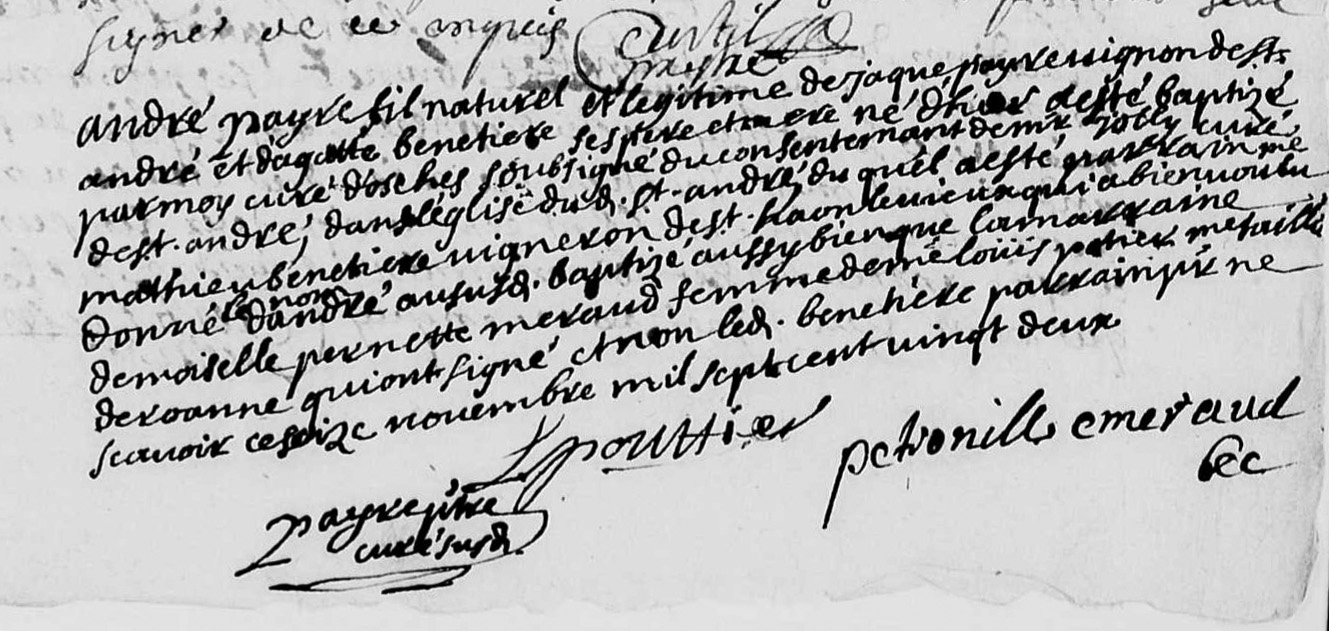 signer de ce enquis
andré payre fil naturel et legitime de jaque payre vignon de st
andré et d'agatte benetiere ses pere et mere né d'hier a esté baptizé
par moy curé d'osches soubsigné du consentemant de mr Jolly curé
de st. andré, dans l'église dud. st. andré, du quel a esté parrain me
mathieu benetiere vigneron de st. haon le vieux qui a bien voulu
donné le nom d'andré au susd. baptizé aussy bien que la marraine
demoiselle pernette meraud femme de me loüis potier metaillé
de roanne qui ont signé et non led. benetiere parrain pr ne
scavoir ce seize novembre mil sept cent vingt deux
Lpouttier
petronille emeraud
payre ptre
curé susd.